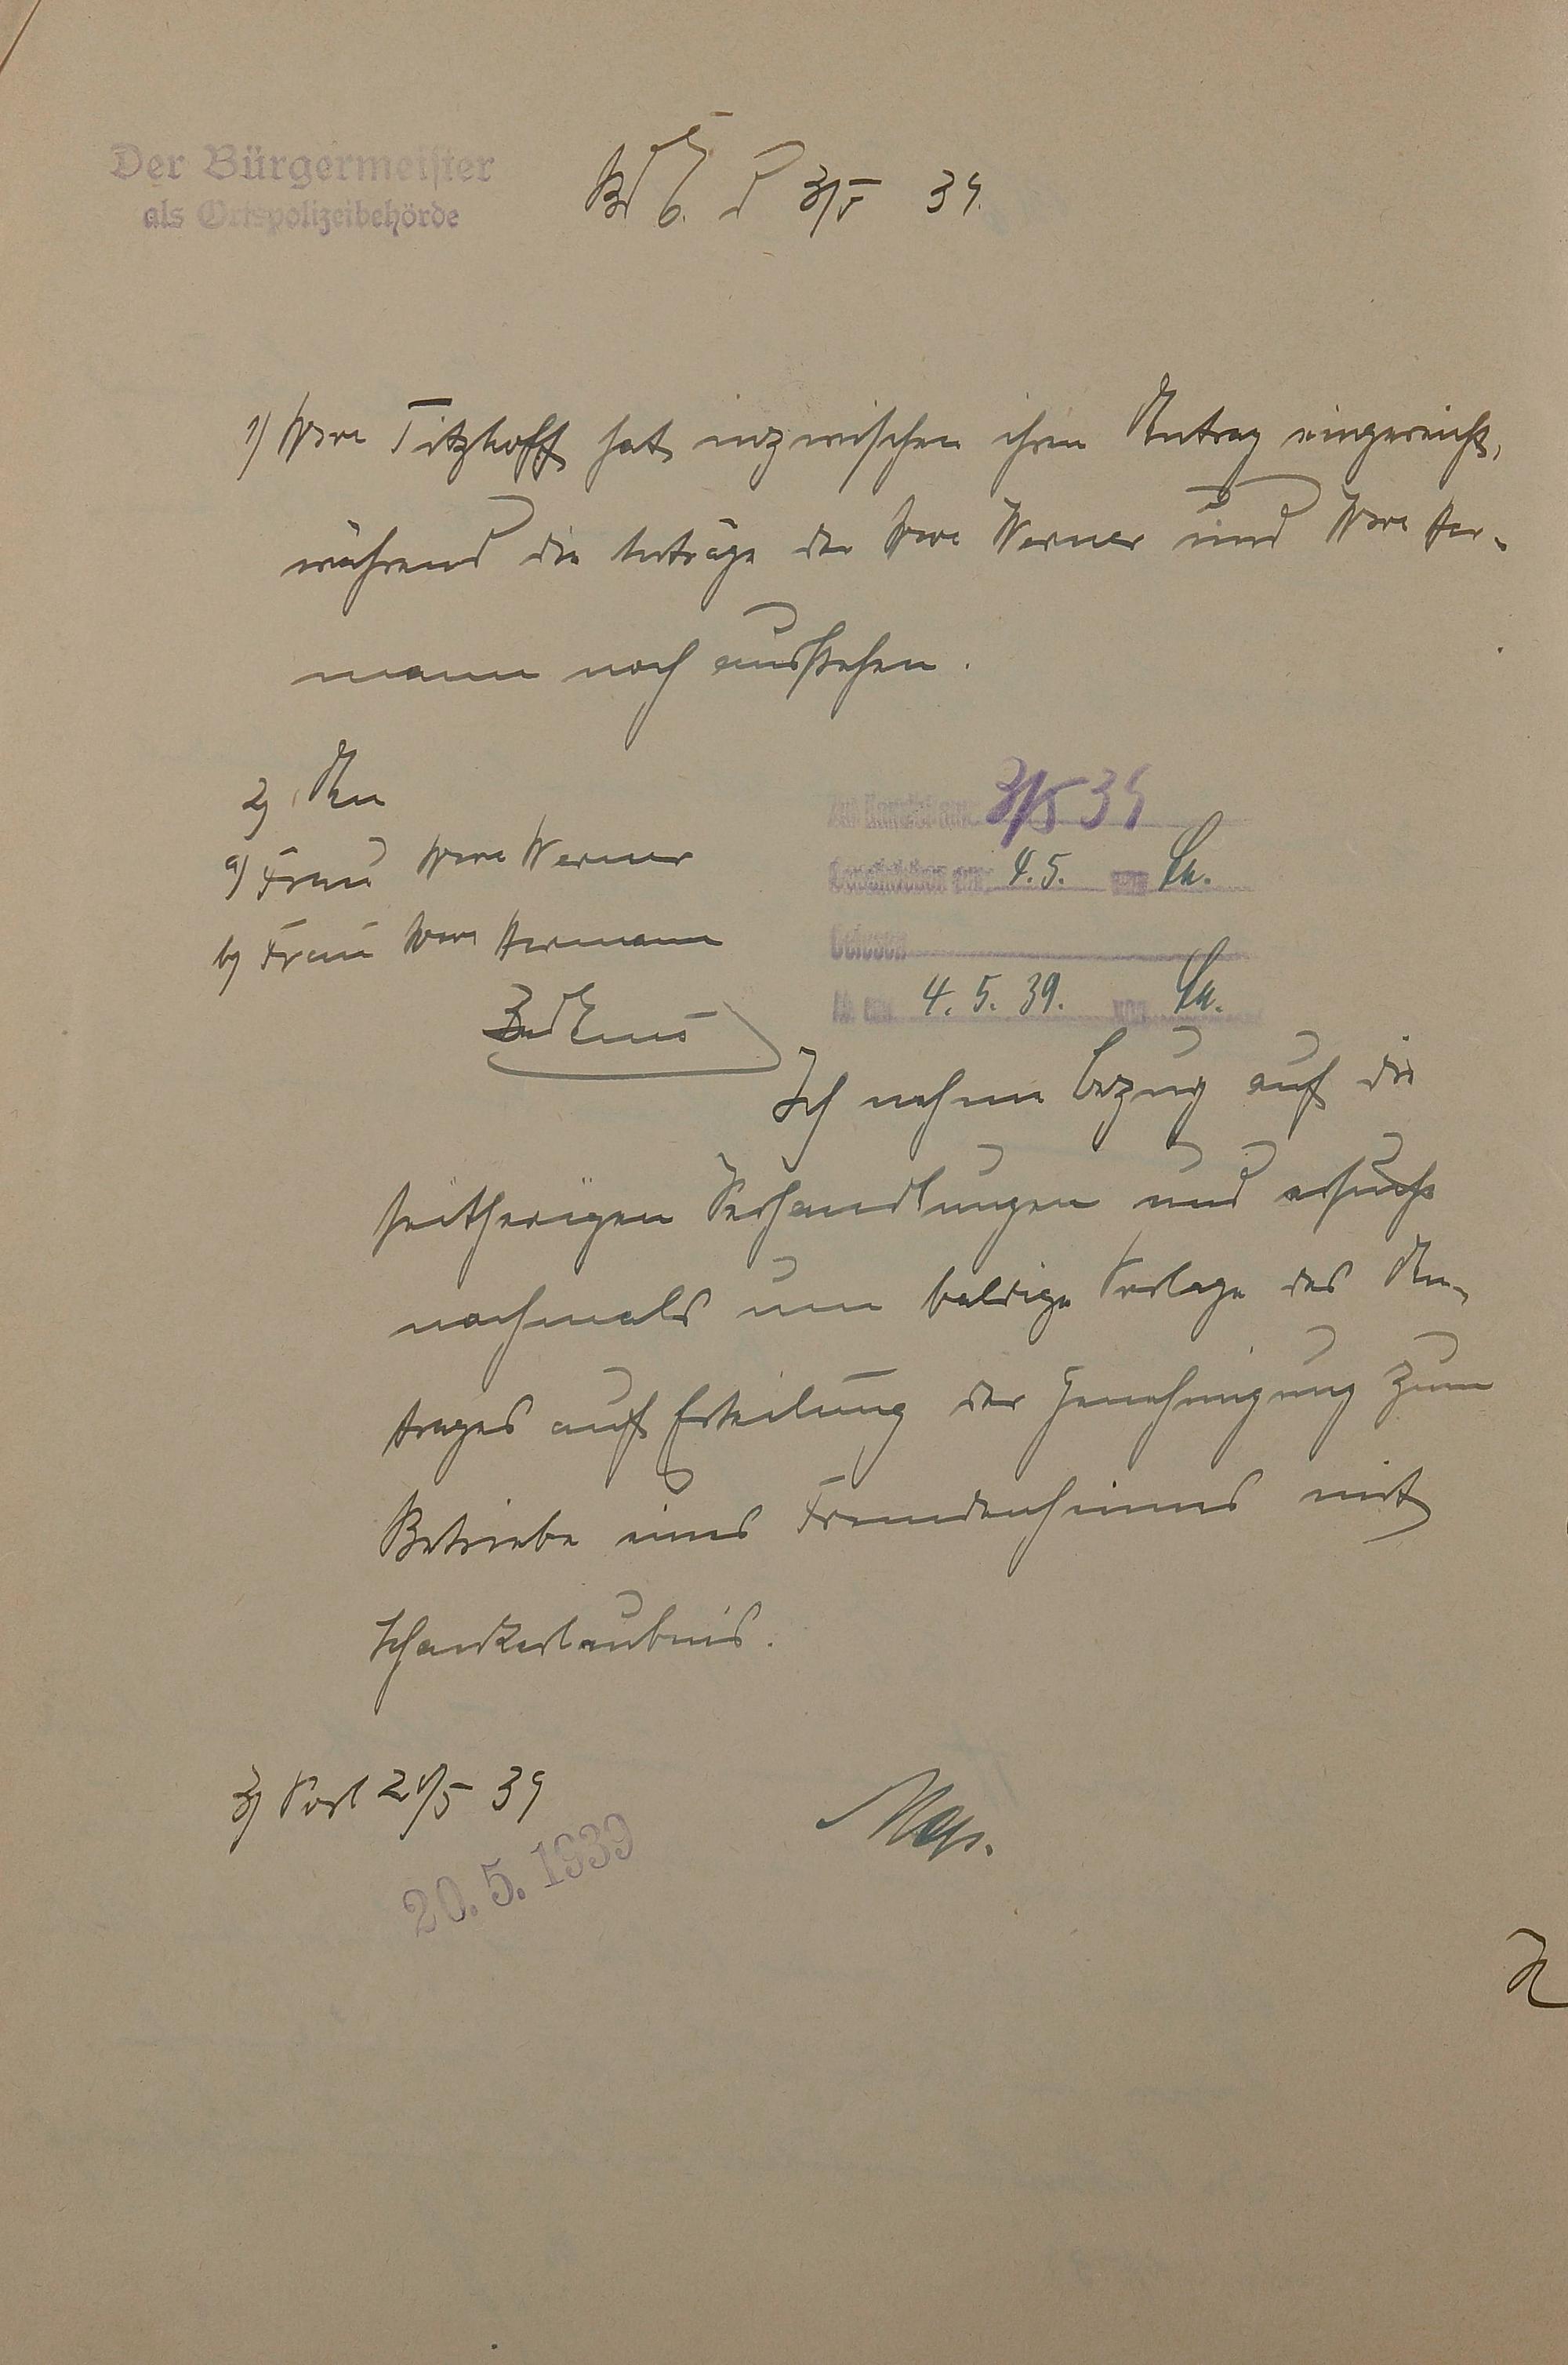 Der Bürgermeister
als Ortspolizeibehörde
Bd E. d 3/5 39.
1) Wwe Titzhoff hat inzwischen ihren Antrag eingereicht,
während die Anträge der Wwe Werner und Wwe Her-
mann noch ausstehen.
2) An
a) Frau Wwe Werner
b) Frau Wwe Hermann
Bad Ems
Zur Kanzlei am: 3/5 39
4.5. von
Gelesen
Ab am 4. 5. 39. von
Ich nehme Bezug auf die
seitherigen Verhandlungen und ersuche
nochmals um baldige Vorlage des An-
trages auf Erteilung der Genehmigung zum
Betriebe eines Fremdenheimes mit
Schankerlaubnis.
3) Vorl 20/5 39
20. 5. 1939